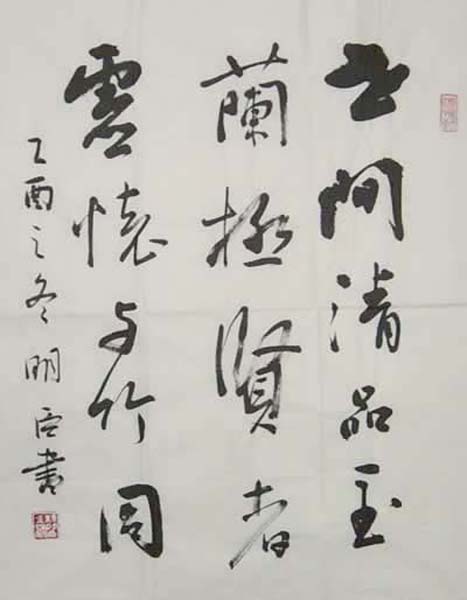 世間清品至
蘭極賢者
虛懷与竹同
乙酉之冬明書